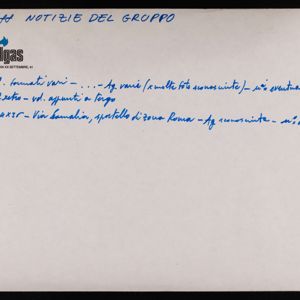 NOTIZIE DEL GRUPPO
lgas
XX SETTEMBRE, 41
formati vari - ... - Ag. varie (x molte foto sconosciute) - n°
retro - vd. appunti a tergo
Via Somalia, sportello di zona Roma - Ag. sconosciuta - n°